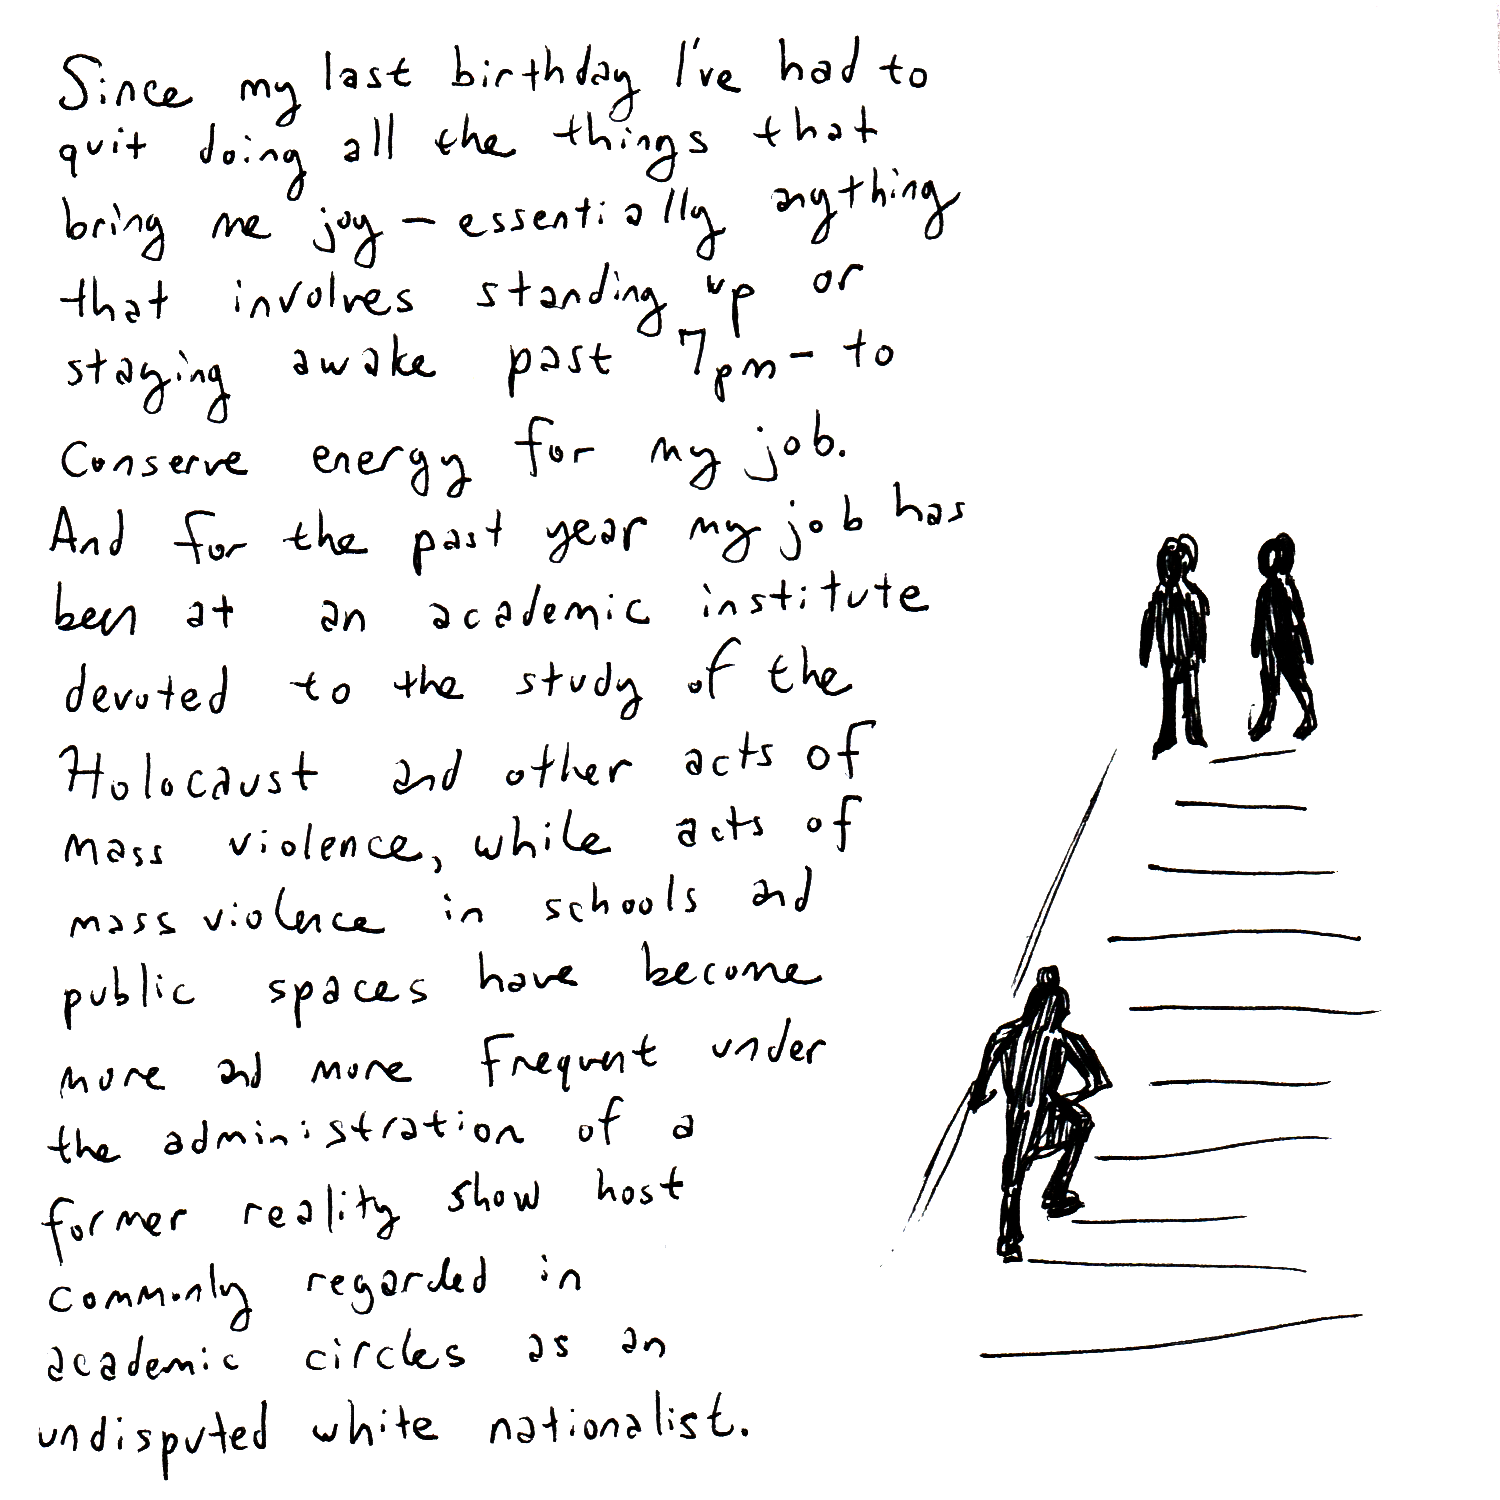 Since my last birthday I've had to
quit doing all the things that
bring me joy — essentially anything
that involves standing up or
staying awake past 7pm — to
conserve energy for my job.
And for the past year my job has
been at an academic institute
devoted to the study of the
Holocaust and other acts of
mass violence, while acts of
mass violence in schools and
public spaces have become
more and more frequent under
the administration of a
former reality show host
commonly regarded in
academic circles as an
undisputed white nationalist.